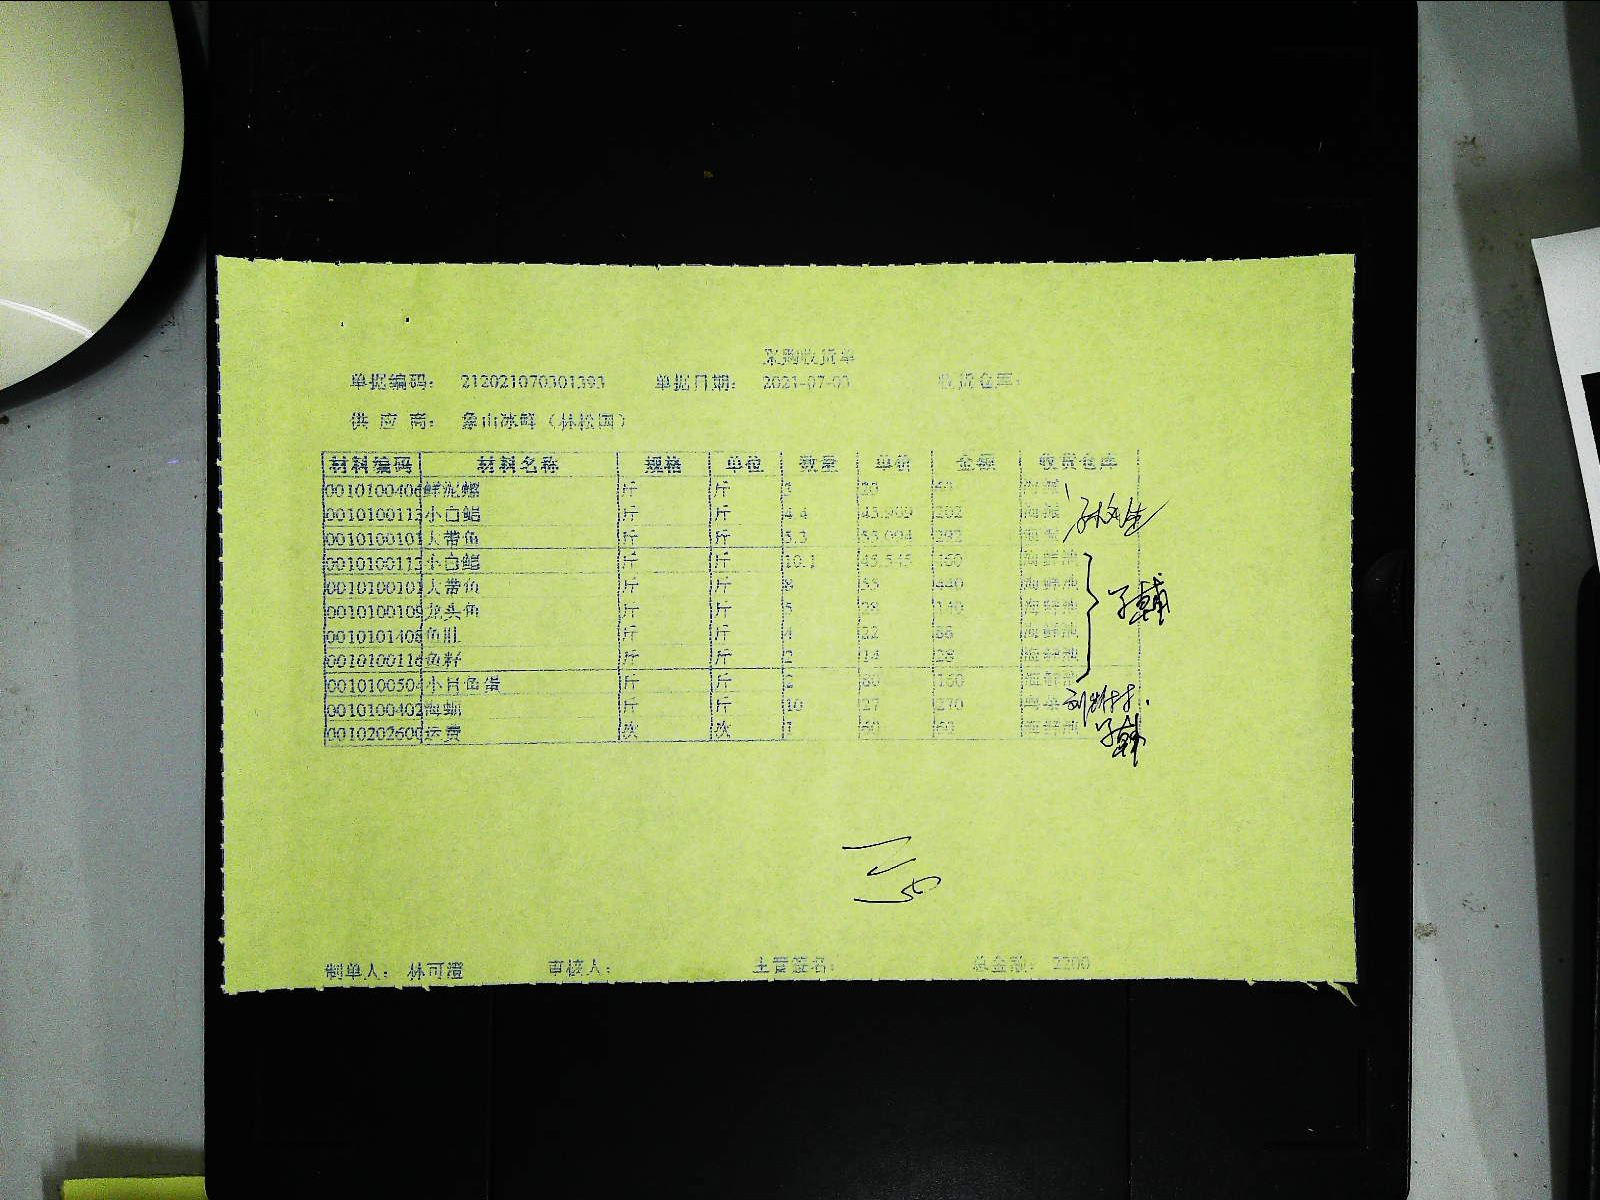 采购收货单
单据编码： 212021070301393 单据日期： 2021-07-03 收货仓库：
供 应 商： 象山冰鲜（林松国）
材料编码 材料名称 规格 单位 数量 单价 金额 收货仓库
0010100406 鲜泥螺 斤 斤 3 20 60
001010011 小白鲳 斤 斤 4.4 45.909 202
0010100101 大带鱼 斤 斤 5.3 55.094 292
001010011 小白鲳 斤 斤 10.1 45.545 460 海鲜池
0010100101 大带鱼 斤 斤 8 55 440 海鲜池
0010100109 龙头鱼 斤 斤 5 28 140 海鲜池
0010101408 鱼肚 斤 斤 4 22 88 海鲜池
0010100116 鱼籽 斤 斤 2 14 28 海鲜池
0010100504 小目鱼蛋 斤 斤 2 80 160 海鲜池
0010100402 海蛳 斤 斤 10 27 270
0010202600 运费 次 次 1 60 60 海鲜池
制单人： 林可澄 审核人： 主管签名： 总金额： 2200